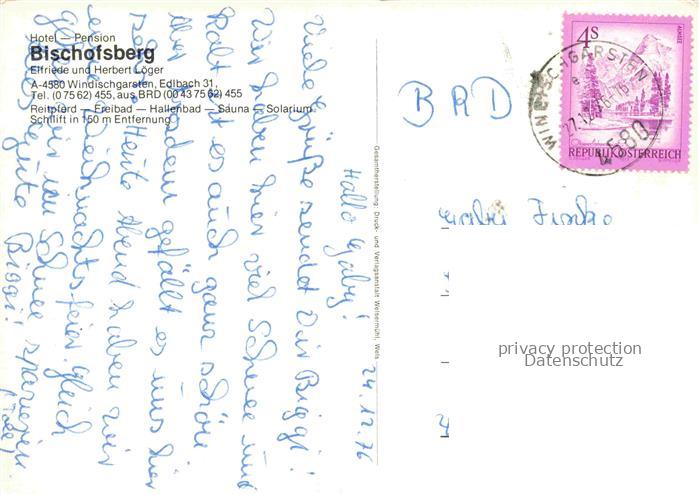 Hotel — Pension
Bischofsberg
Elfriede und Herbert Löger
A-4580 Windischgarsten, Edlbach 31,
Tel. (0 75 62) 455, aus BRD (00 43 75 62) 455
Reitpferd — Freibad — Hallenbad — Sauna — Solarium
Schilift in 150 m Entfernung
24.12.76
Hallo Gaby!
Viele Grüße sendet Dir Biggi!
Wir haben hier viel Schnee und
kalt ist es auch ganz schön
Aber trotzdem gefällt es uns hier
sehr. Heute Abend haben wir
eine Weihnachtsfeier. Gleich
gehen wir im Schnee spazieren
Alles gute Biggi!
Gesamtherstellung: Druck- und Verlagsanstalt Welsermühl, Wels
BRD
4S
ALMSEE
REPUBLIK ÖSTERREICH
WINDISCHGARSTEN
4580
privacy protection
Datenschutz